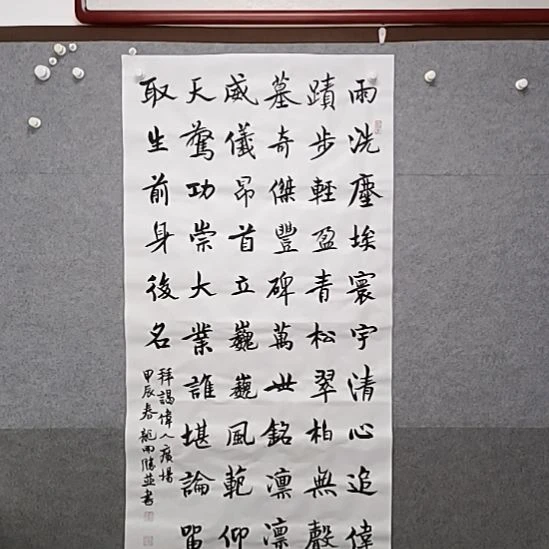 雨洗塵埃寰宇清心追偉
蹟步輕盈青松翠柏無聲
墓奇傑豐碑萬世銘凛凛
威儀昂首立巍巍風範仰
天驚功崇大業誰堪論留
取生前身後名
拜謁偉人廣場
甲辰春龍雨勝並書